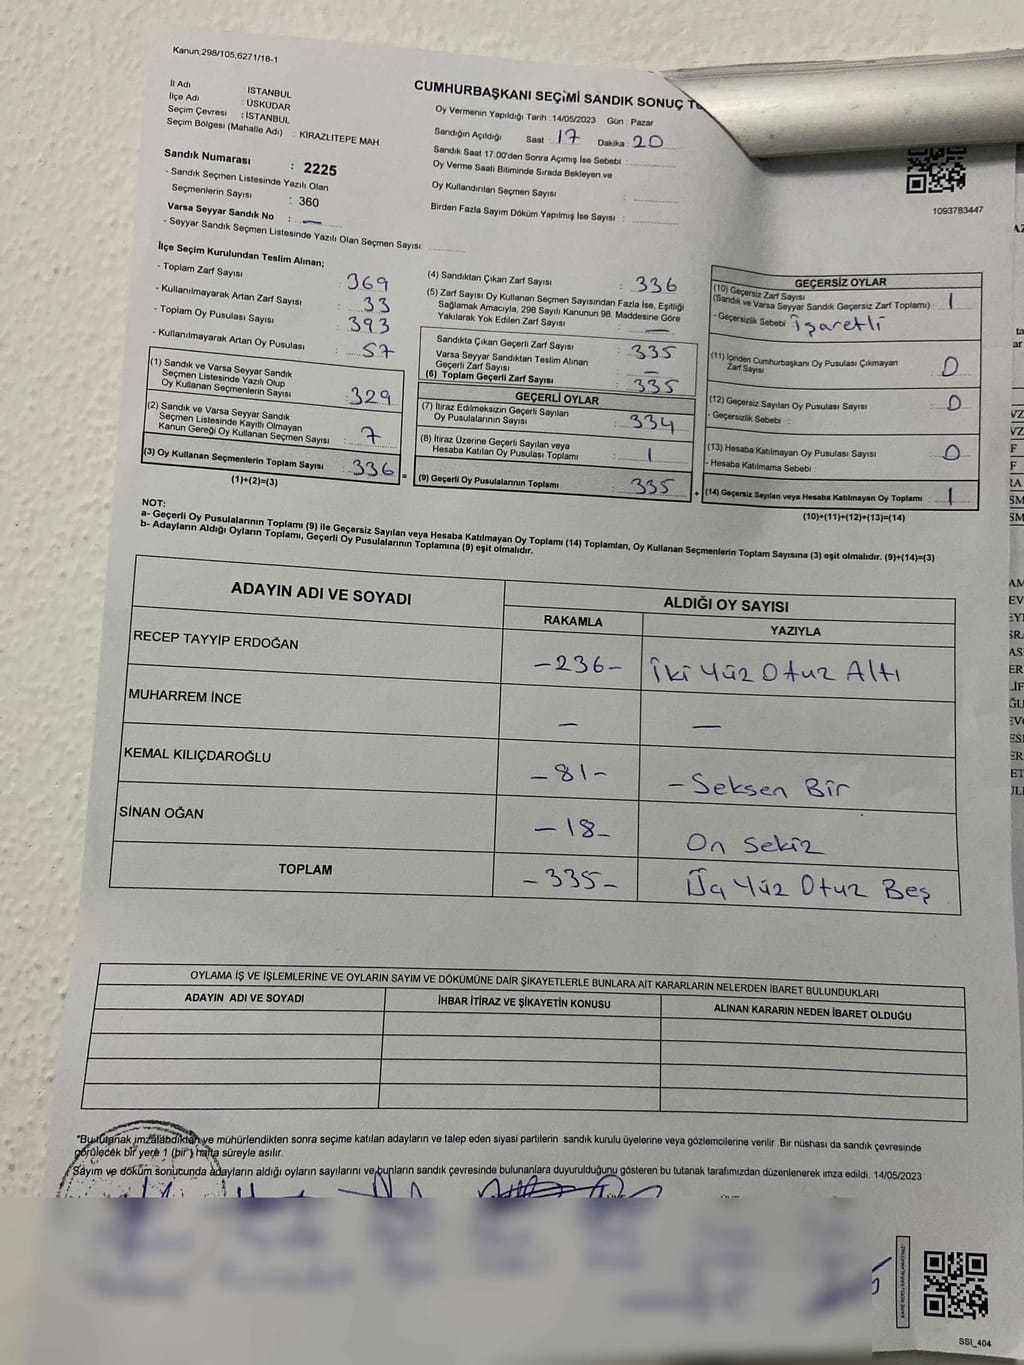 Kanun;298/105,6271/18-1
CUMHURBAŞKANI SEÇİMİ SANDIK SONUÇ
İl Adı : İSTANBUL
İlçe Adı : ÜSKÜDAR
Seçim Çevresi : İSTANBUL
Seçim Bölgesi (Mahalle Adı) : KİRAZLITEPE MAH.
Sandık Numarası : 2225
- Sandık Seçmen Listesinde Yazılı Olan
Seçmenlerin Sayısı : 360
Varsa Seyyar Sandık No : —
- Seyyar Sandık Seçmen Listesinde Yazılı Olan Seçmen Sayısı:
Oy Vermenin Yapıldığı Tarih :14/05/2023 Gün : Pazar
Sandığın Açıldığı Saat : 17 Dakika : 20
Sandık Saat 17:00'den Sonra Açımış İse Sebebi :
Oy Verme Saati Bitiminde Sırada Bekleyen ve
Oy Kullandırılan Seçmen Sayısı :
Birden Fazla Sayım Döküm Yapılmış İse Sayısı :
1093783447
İlçe Seçim Kurulundan Teslim Alınan;
- Toplam Zarf Sayısı : 369
- Kullanılmayarak Artan Zarf Sayısı : 33
- Toplam Oy Pusulası Sayısı : 393
- Kullanılmayarak Artan Oy Pusulası : 57
(1) Sandık ve Varsa Seyyar Sandık
Seçmen Listesinde Yazılı Olup
Oy Kullanan Seçmenlerin Sayısı : 329
(2) Sandık ve Varsa Seyyar Sandık
Seçmen Listesinde Kayıtlı Olmayan
Kanun Gereği Oy Kullanan Seçmen Sayısı : 7
(3) Oy Kullanan Seçmenlerin Toplam Sayısı : 336 =
(1)+(2)=(3)
(4) Sandıktan Çıkan Zarf Sayısı : 336
(5) Zarf Sayısı Oy Kullanan Seçmen Sayısından Fazla İse, Eşitliği
Sağlamak Amacıyla, 298 Sayılı Kanunun 98. Maddesine Göre
Yakılarak Yok Edilen Zarf Sayısı : —
Sandıkta Çıkan Geçerli Zarf Sayısı : 335
Varsa Seyyar Sandıktan Teslim Alınan
Geçerli Zarf Sayısı : —
(6) Toplam Geçerli Zarf Sayısı : 335
GEÇERLİ OYLAR
(7) İtiraz Edilmeksizin Geçerli Sayılan
Oy Pusulalarının Sayısı : 334
(8) İtiraz Üzerine Geçerli Sayılan veya
Hesaba Katılan Oy Pusulası Toplamı : 1
(9) Geçerli Oy Pusulalarının Toplamı : 335 +
GEÇERSİZ OYLAR
(10) Geçersiz Zarf Sayısı
(Sandık ve Varsa Seyyar Sandık Geçersiz Zarf Toplamı) : 1
- Geçersizlik Sebebi : İşaretli
(11) İçinden Cumhurbaşkanı Oy Pusulası Çıkmayan
Zarf Sayısı : 0
(12) Geçersiz Sayılan Oy Pusulası Sayısı : 0
- Geçersizlik Sebebi :
(13) Hesaba Katılmayan Oy Pusulası Sayısı : 0
- Hesaba Katılmama Sebebi :
(14) Geçersiz Sayılan veya Hesaba Katılmayan Oy Toplamı : 1
(10)+(11)+(12)+(13)=(14)
NOT:
a- Geçerli Oy Pusulalarının Toplamı (9) ile Geçersiz Sayılan veya Hesaba Katılmayan Oy Toplamı (14) Toplamları, Oy Kullanan Seçmenlerin Toplam Sayısına (3) eşit olmalıdır. (9)+(14)=(3)
b- Adayların Aldığı Oyların Toplamı, Geçerli Oy Pusulalarının Toplamına (9) eşit olmalıdır.
ADAYIN ADI VE SOYADI ALDIĞI OY SAYISI
RAKAMLA YAZIYLA
RECEP TAYYİP ERDOĞAN -236- İki Yüz Otuz Altı
MUHARREM İNCE — —
KEMAL KILIÇDAROĞLU -81- - Seksen Bir
SİNAN OĞAN -18- On Sekiz
TOPLAM -335- Üç Yüz Otuz Beş
OYLAMA İŞ VE İŞLEMLERİNE VE OYLARIN SAYIM VE DÖKÜMÜNE DAİR ŞİKAYETLERLE BUNLARA AİT KARARLARIN NELERDEN İBARET BULUNDUKLARI
ADAYIN ADI VE SOYADI İHBAR İTİRAZ VE ŞİKAYETİN KONUSU ALINAN KARARIN NEDEN İBARET OLDUĞU
"Bu tutanak imzalandıktan ve mühürlendikten sonra seçime katılan adayların ve talep eden siyasi partilerin sandık kurulu üyelerine veya gözlemcilerine verilir. Bir nüshası da sandık çevresinde
görülecek bir yere 1 (bir) hafta süreyle asılır.
Sayım ve döküm sonucunda adayların aldığı oyların sayılarını ve bunların sandık çevresinde bulunanlara duyurulduğunu gösteren bu tutanak tarafımızdan düzenlenerek imza edildi. 14/05/2023
SSI_404